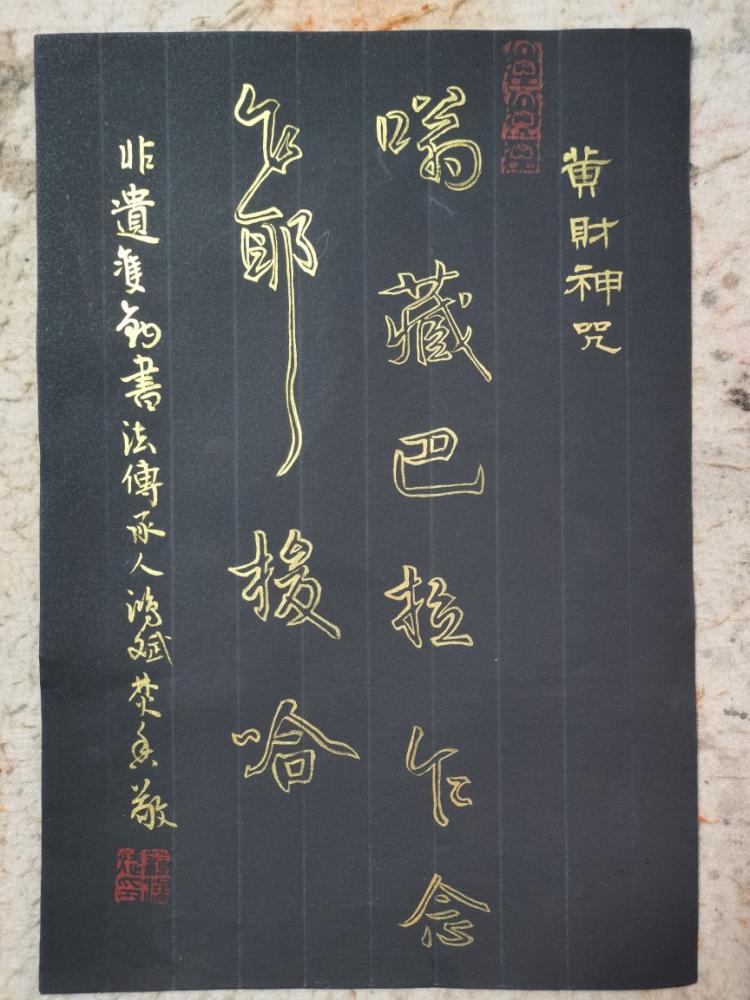 黄財神咒
嗡藏巴拉乍念
乍耶梭哈
非遺雙鈎書法傳承人鴻斌焚香敬